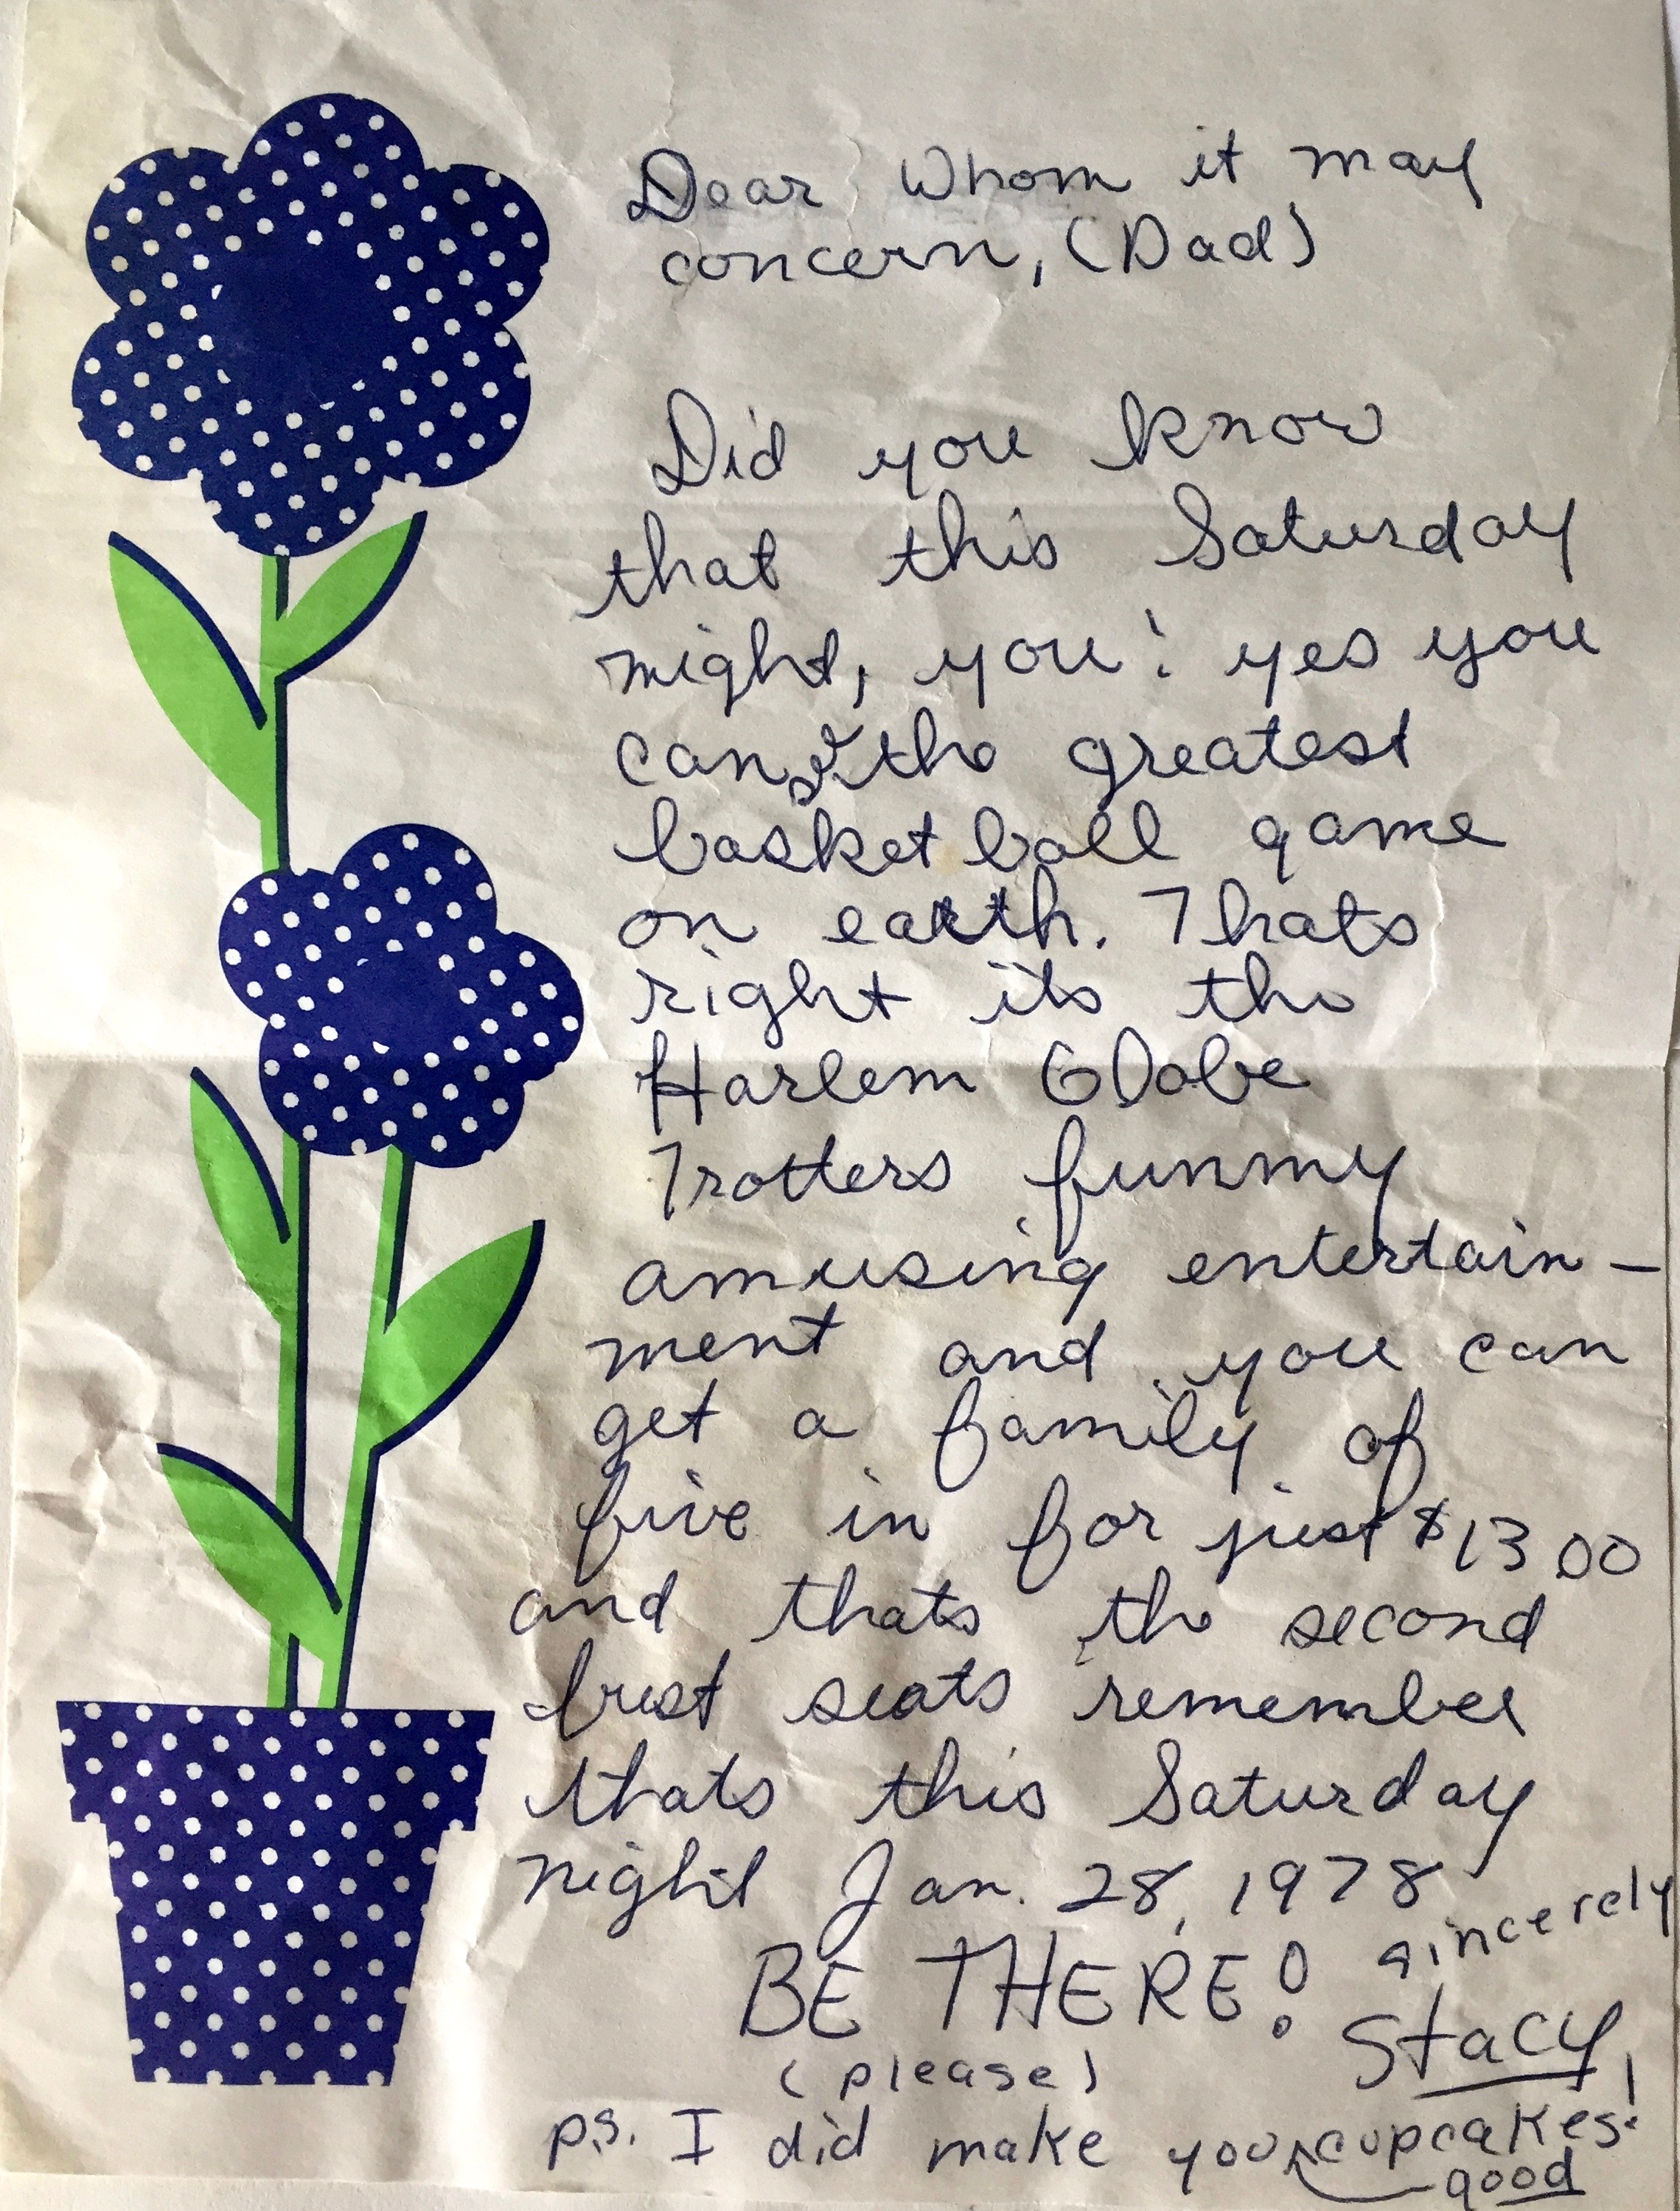 Dear Whom it may
concern, (Dad)
Did you know
that this Saturday
night, you! yes you
can the greatest
basket ball game
on earth. Thats
right its the
Harlem Globe
Trotters funny
amusing entertain-
ment and you can
get a family of
five in for just $13.00
and thats the second
best seats remember
thats this Saturday
night Jan. 28, 1978
BE THERE!
(please)
sincerely
Stacy
p.s. I did make you cupcakes!
good